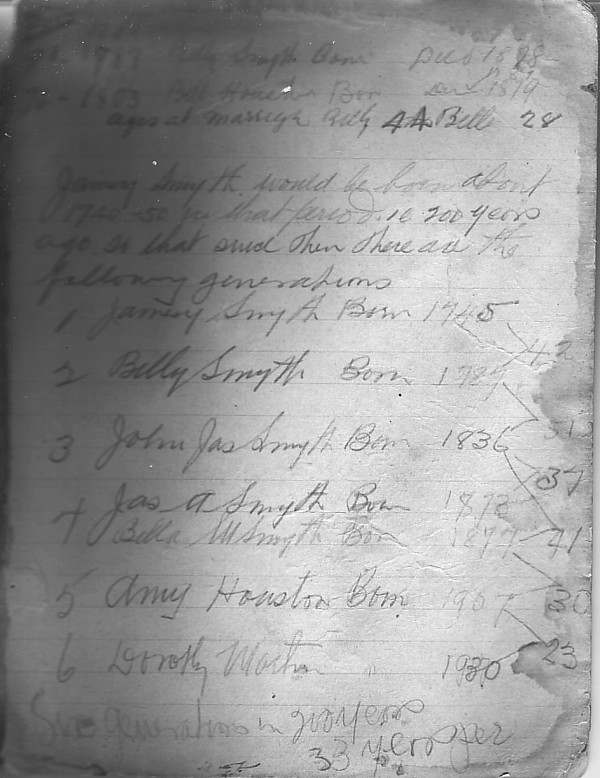 1787 Billy Smyth Born Died 1878
1803 Bell Houston Bor Died 1879
ages at marriege Billy 44 Bell 28
Jamesy Smyth would be born about
1740-50 in that period. ie 200 years
ago. so that since then there are the
following generations
1 Jamesy Smyth Born 1745
42
2 Billy Smyth Born 1787
3 John Jas Smyth Born 1836
37
4 Jas A Smyth Born 1873
Bella M Smyth Born 1877
41
5 Amy Houston Born 1907
30
6 Dorothy Martin " 1930
23
Six generations in 200 years
33 years per